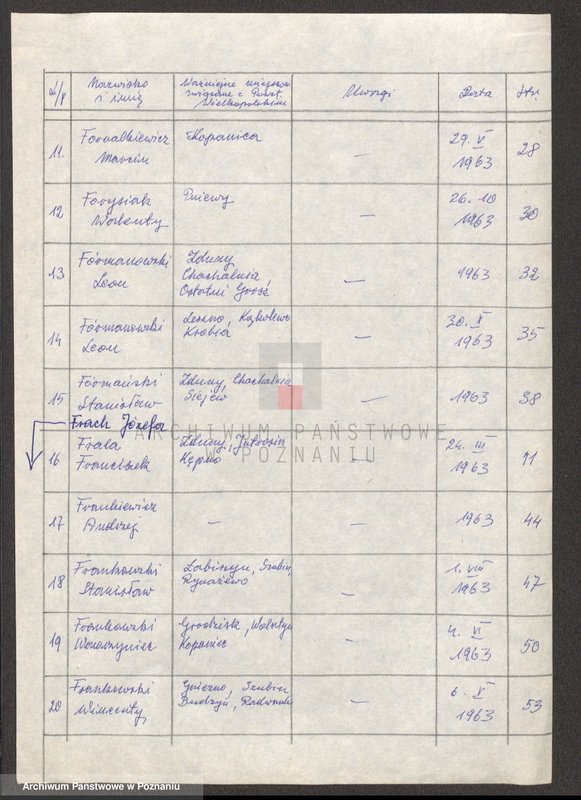 L/p Nazwisko i imię Ważniejsze miejscow. związane z Powst. Wielkopolskim Uwagi Data Str.
11. Fornalkiewicz Marcin Kopanica — 29. V 1963 28
12 Forysiak Walenty Pniewy — 26. 10 1963 30
13 Fórmanowski Leon Zduny Chachalnia, Ostatni Grosz — 1963 32
14 Fórmanowski Leon Leszno, Kąkolewo Krobia — 30. X 1963 35
15 Fórmański Stanisław Zduny, Chachalnia — 1963 38
Frach Józefa
16 Frala Franciszek Zduny, Jutrosin Kępno — 24. III 1963 41
17 Frankiewicz Andrzej — — 1963 44
18 Frankowski Stanisław Łabiszyn, Szubin, Rynarzewo — 1. VIII 1963 47
19 Frankowski Wawrzyniec Grodzisk, Wolsztyn Kopanica — 4. VI 1963 50
20 Frankowski Wincenty Gniezno, Szubin Budzyń, — 6. X 1963 53
ARCHIWUM PAŃSTWOWE
W POZNANIU
Archiwum Państwowe w Poznaniu